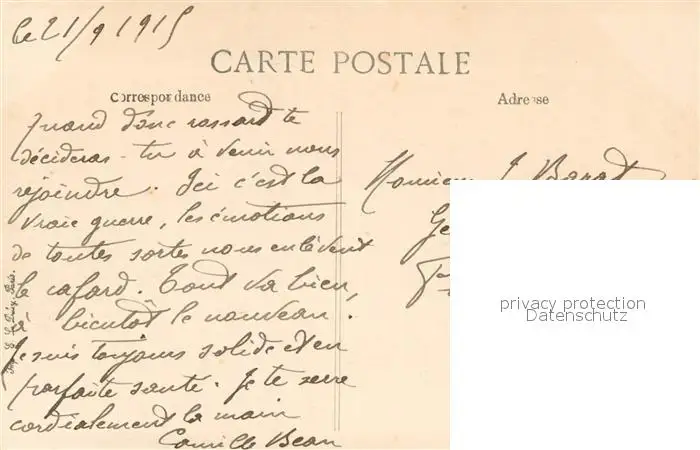 le 21/9 1915
CARTE POSTALE
Correspondance
Adresse
Quand donc rossard te
décideras-tu à venir nous
rejoindre. Ici c'est la
vraie guerre, les émotions
de toutes sortes nous enlèvent
le cafard. Tout va bien,
à bientôt le nouveau.
Je suis toujours solide et en
parfaite santé. Je te serre
cordialement la main
Camille Bean
Monsieur J. Barat
Imp. Paris.
privacy protection
Datenschutz